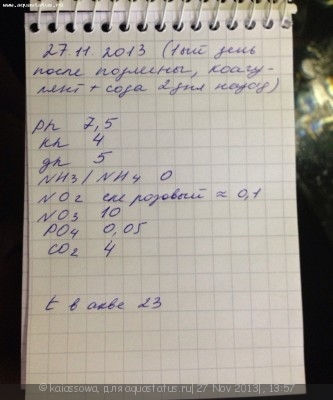 www.aquastatus.ru
27.11.2013 (1ый день
после подмены, коагу-
лянт + сода 2 дня назад)
ph 7,5
kh 4
gh 5
NH3/NH4 0
NO2 сл розовый ≈ 0,1
NO3 10
PO4 0,05
CO2 4
t в акве 23
© kaiassowa, для aquastatus.ru| 27 Nov 2013| , 13:57